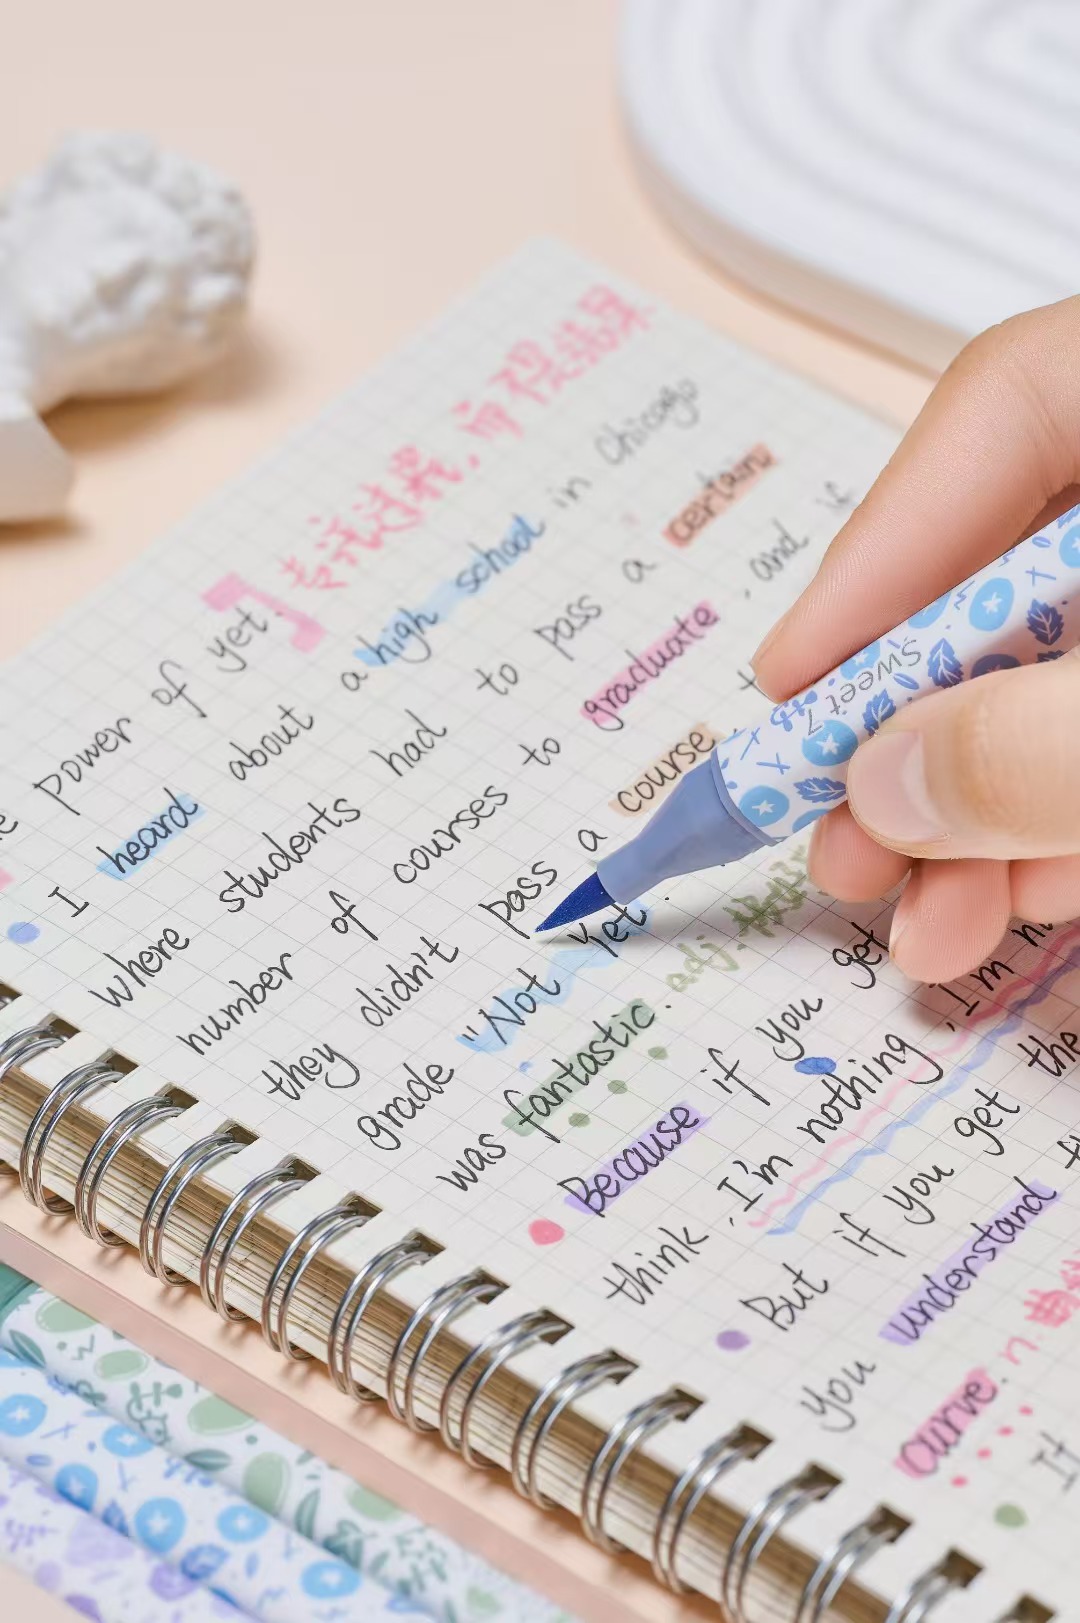 power of yet. 专注过程,而不是结果
I heard about a high school in Chicago
where students had to pass a certain
number of courses to graduate, and if
they didn't pass a course
grade "Not Yet.
was fantastic. adj.
Because if you get
think, I'm nothing, I'm
But if you get the
you understand
curve. n 曲线
It
Sweet 7